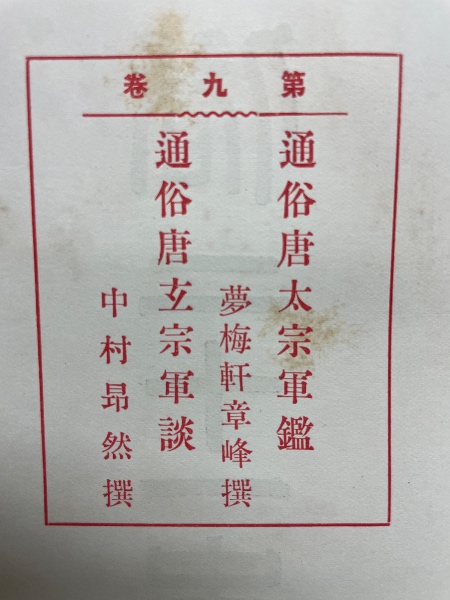 第九卷
通俗唐太宗軍鑑
夢梅軒章峰撰
通俗唐玄宗軍談
中村昂然撰